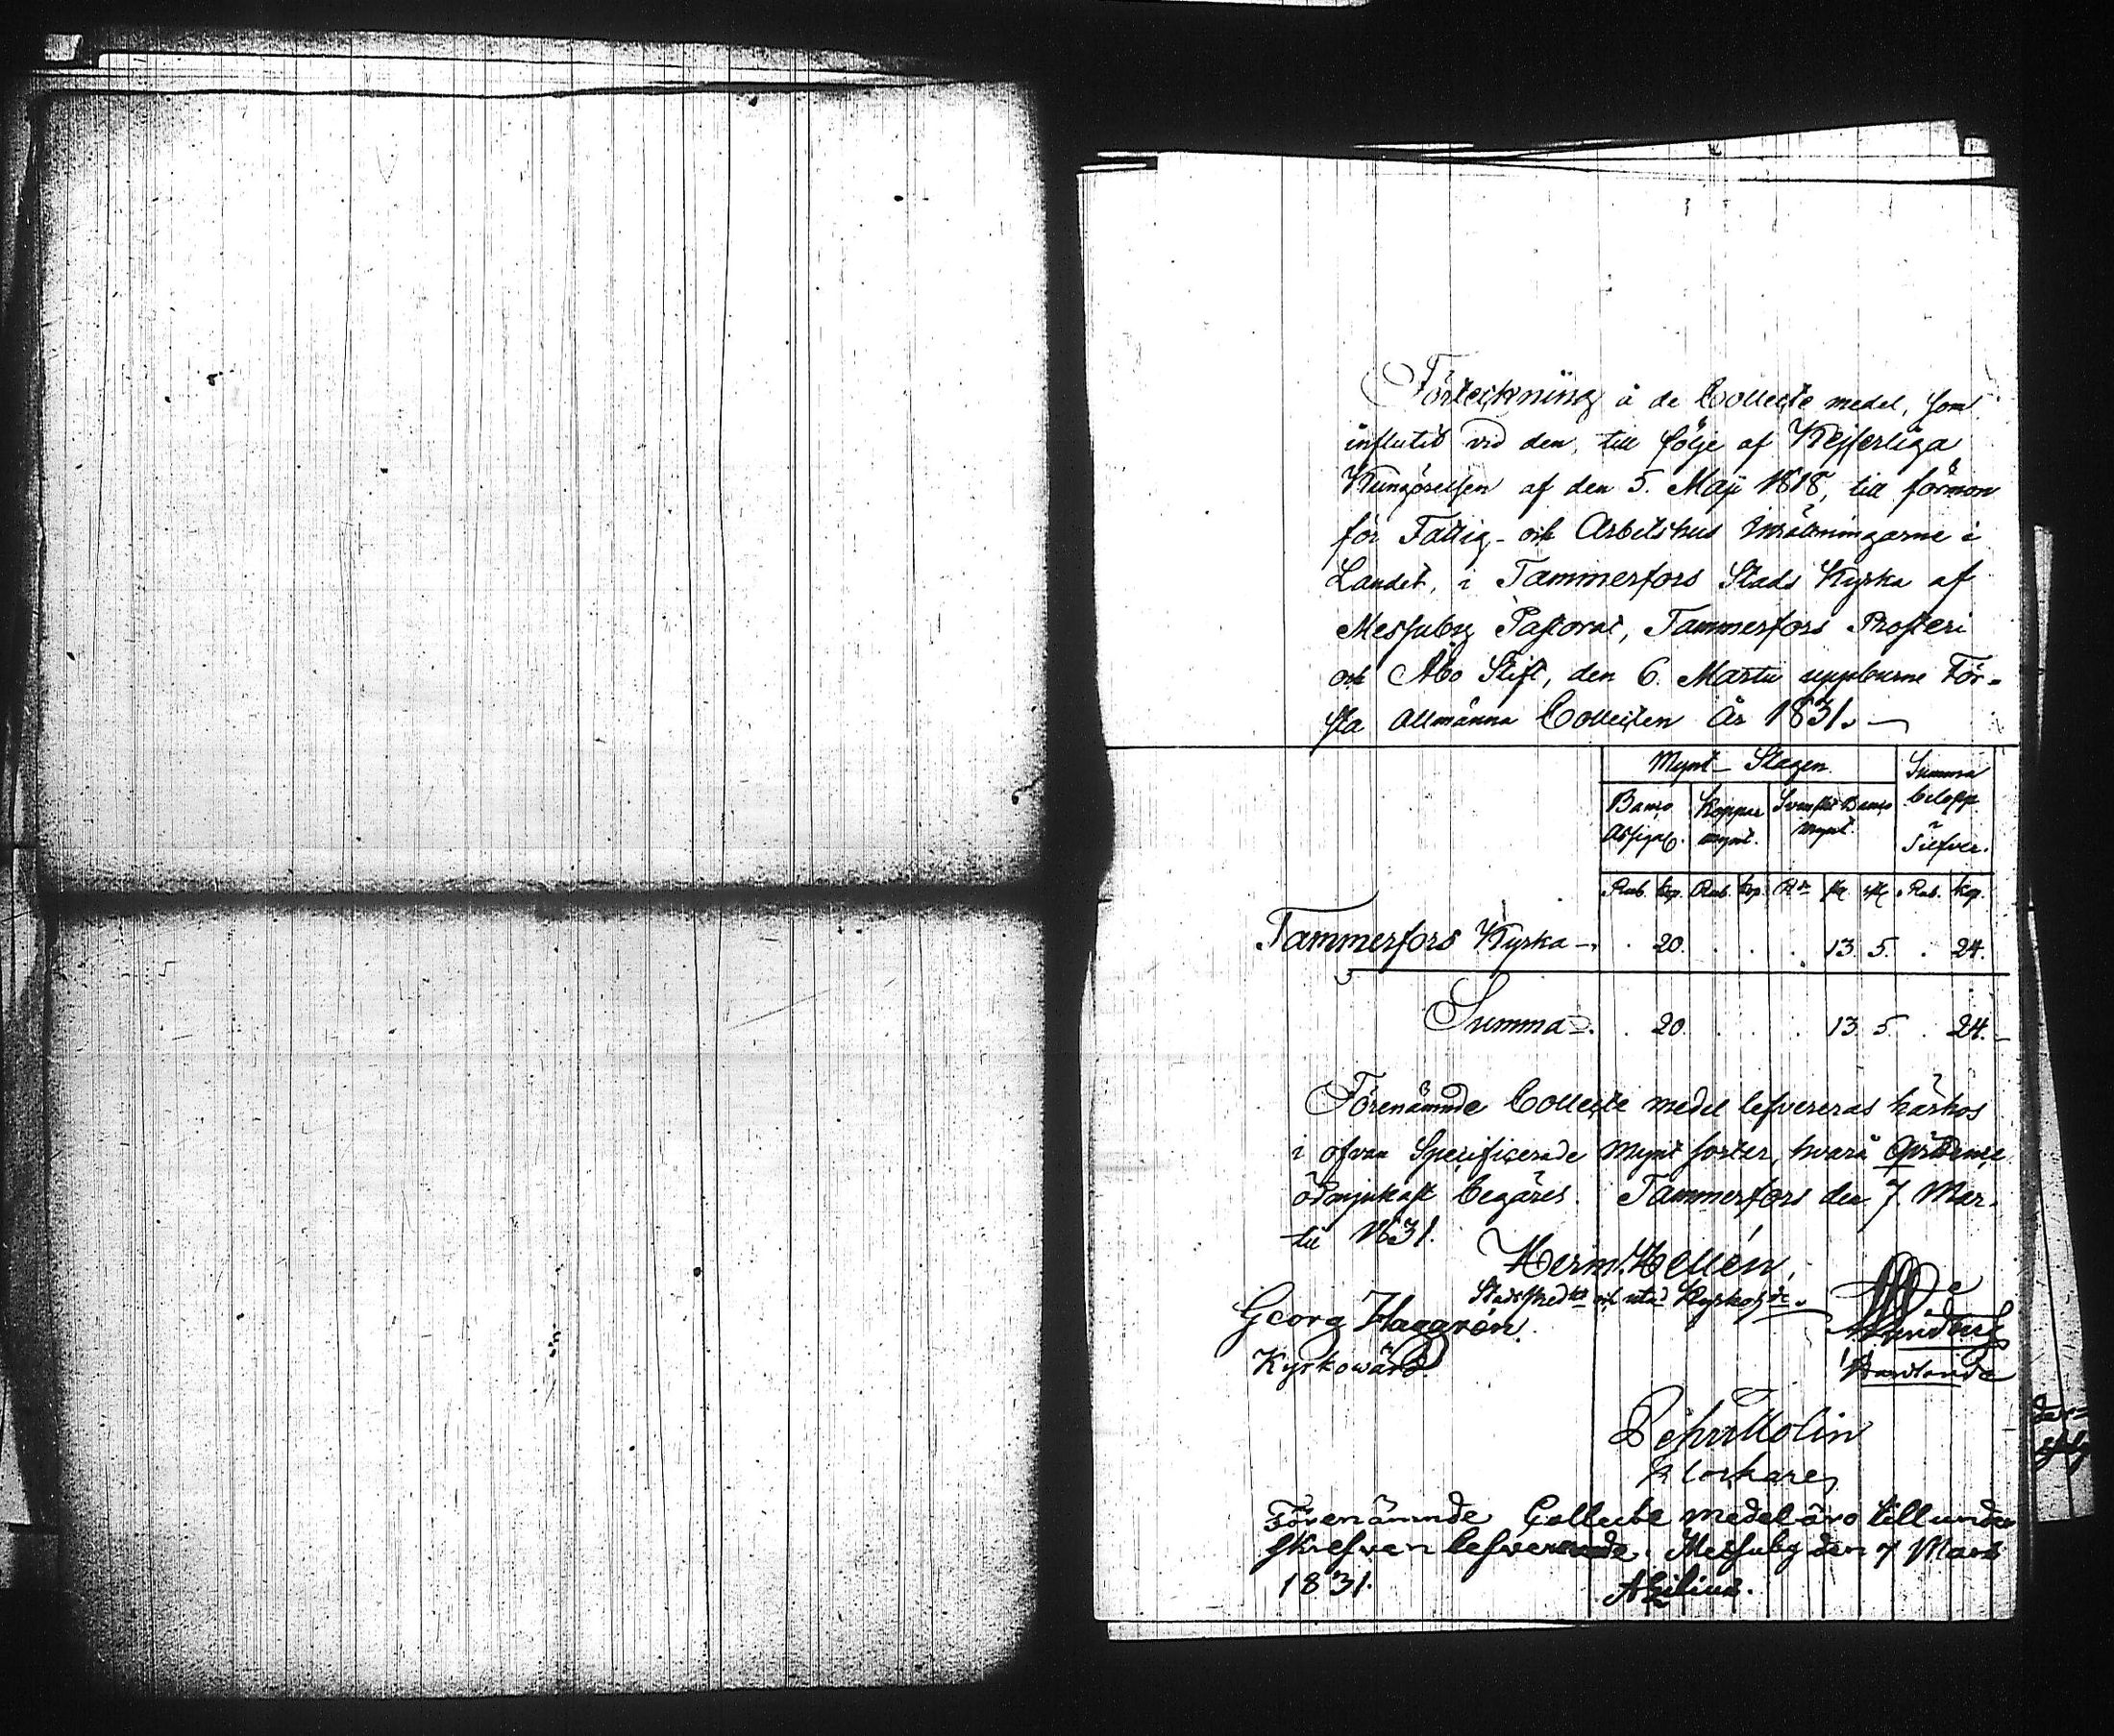 Förteckning å de Collecte medel, som
influtit vid den, till följe af Kejserliga
Kungörelsen af den 5. Maji 1818, till förmon
för Fattig- och Arbetshus Inrättningarne i
Landet, i Tammerfors Stads Kyrka af
Messuby Pastorat, Tammerfors Prosteri
och Åbo Stift, den 6. Martii uppburne För-
sta allmänna Collecten År 1831.
Mynt-Slagen. Summa
Banco Koppar Svenskt Banco belopp
Assign. mynt. mynt. i
Silfver.
Rub. kop. Rub. kop. Rd. sk. rst. Rub. kop.
Tammerfors Kyrka 20. 13. 5. 24.
Summa 20. 13. 5. 24.
Förenämnde Collecte medel lefvereras härhos
i ofvan Specificerade Mynt sorter, hvarå
ödmjukast begäres. Tammerfors den 7. Mar-
tii 1831.
Herm. Hellén,
Georg Haggrén
Kyrkowärd.
Pehr Molin
Klockare
Förenämnde Collecte medel äro till under
skrefvan Messuby den 7 Mars
1831.